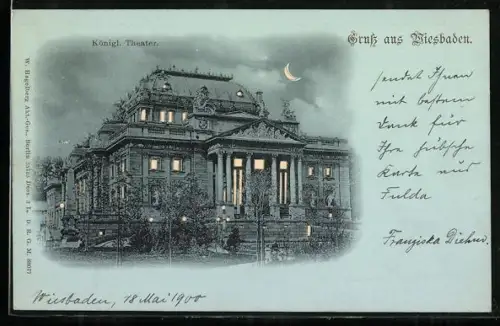 Königl. Theater.
Gruß aus Wiesbaden.
sendet Ihnen
mit bestem
Dank für
Ihre hübsche
Karte aus
Fulda
Franziska Diehm
Wiesbaden, 18 Mai 1900
W. Hagelberg Akt.-Ges., Berlin
D. R. G. M.